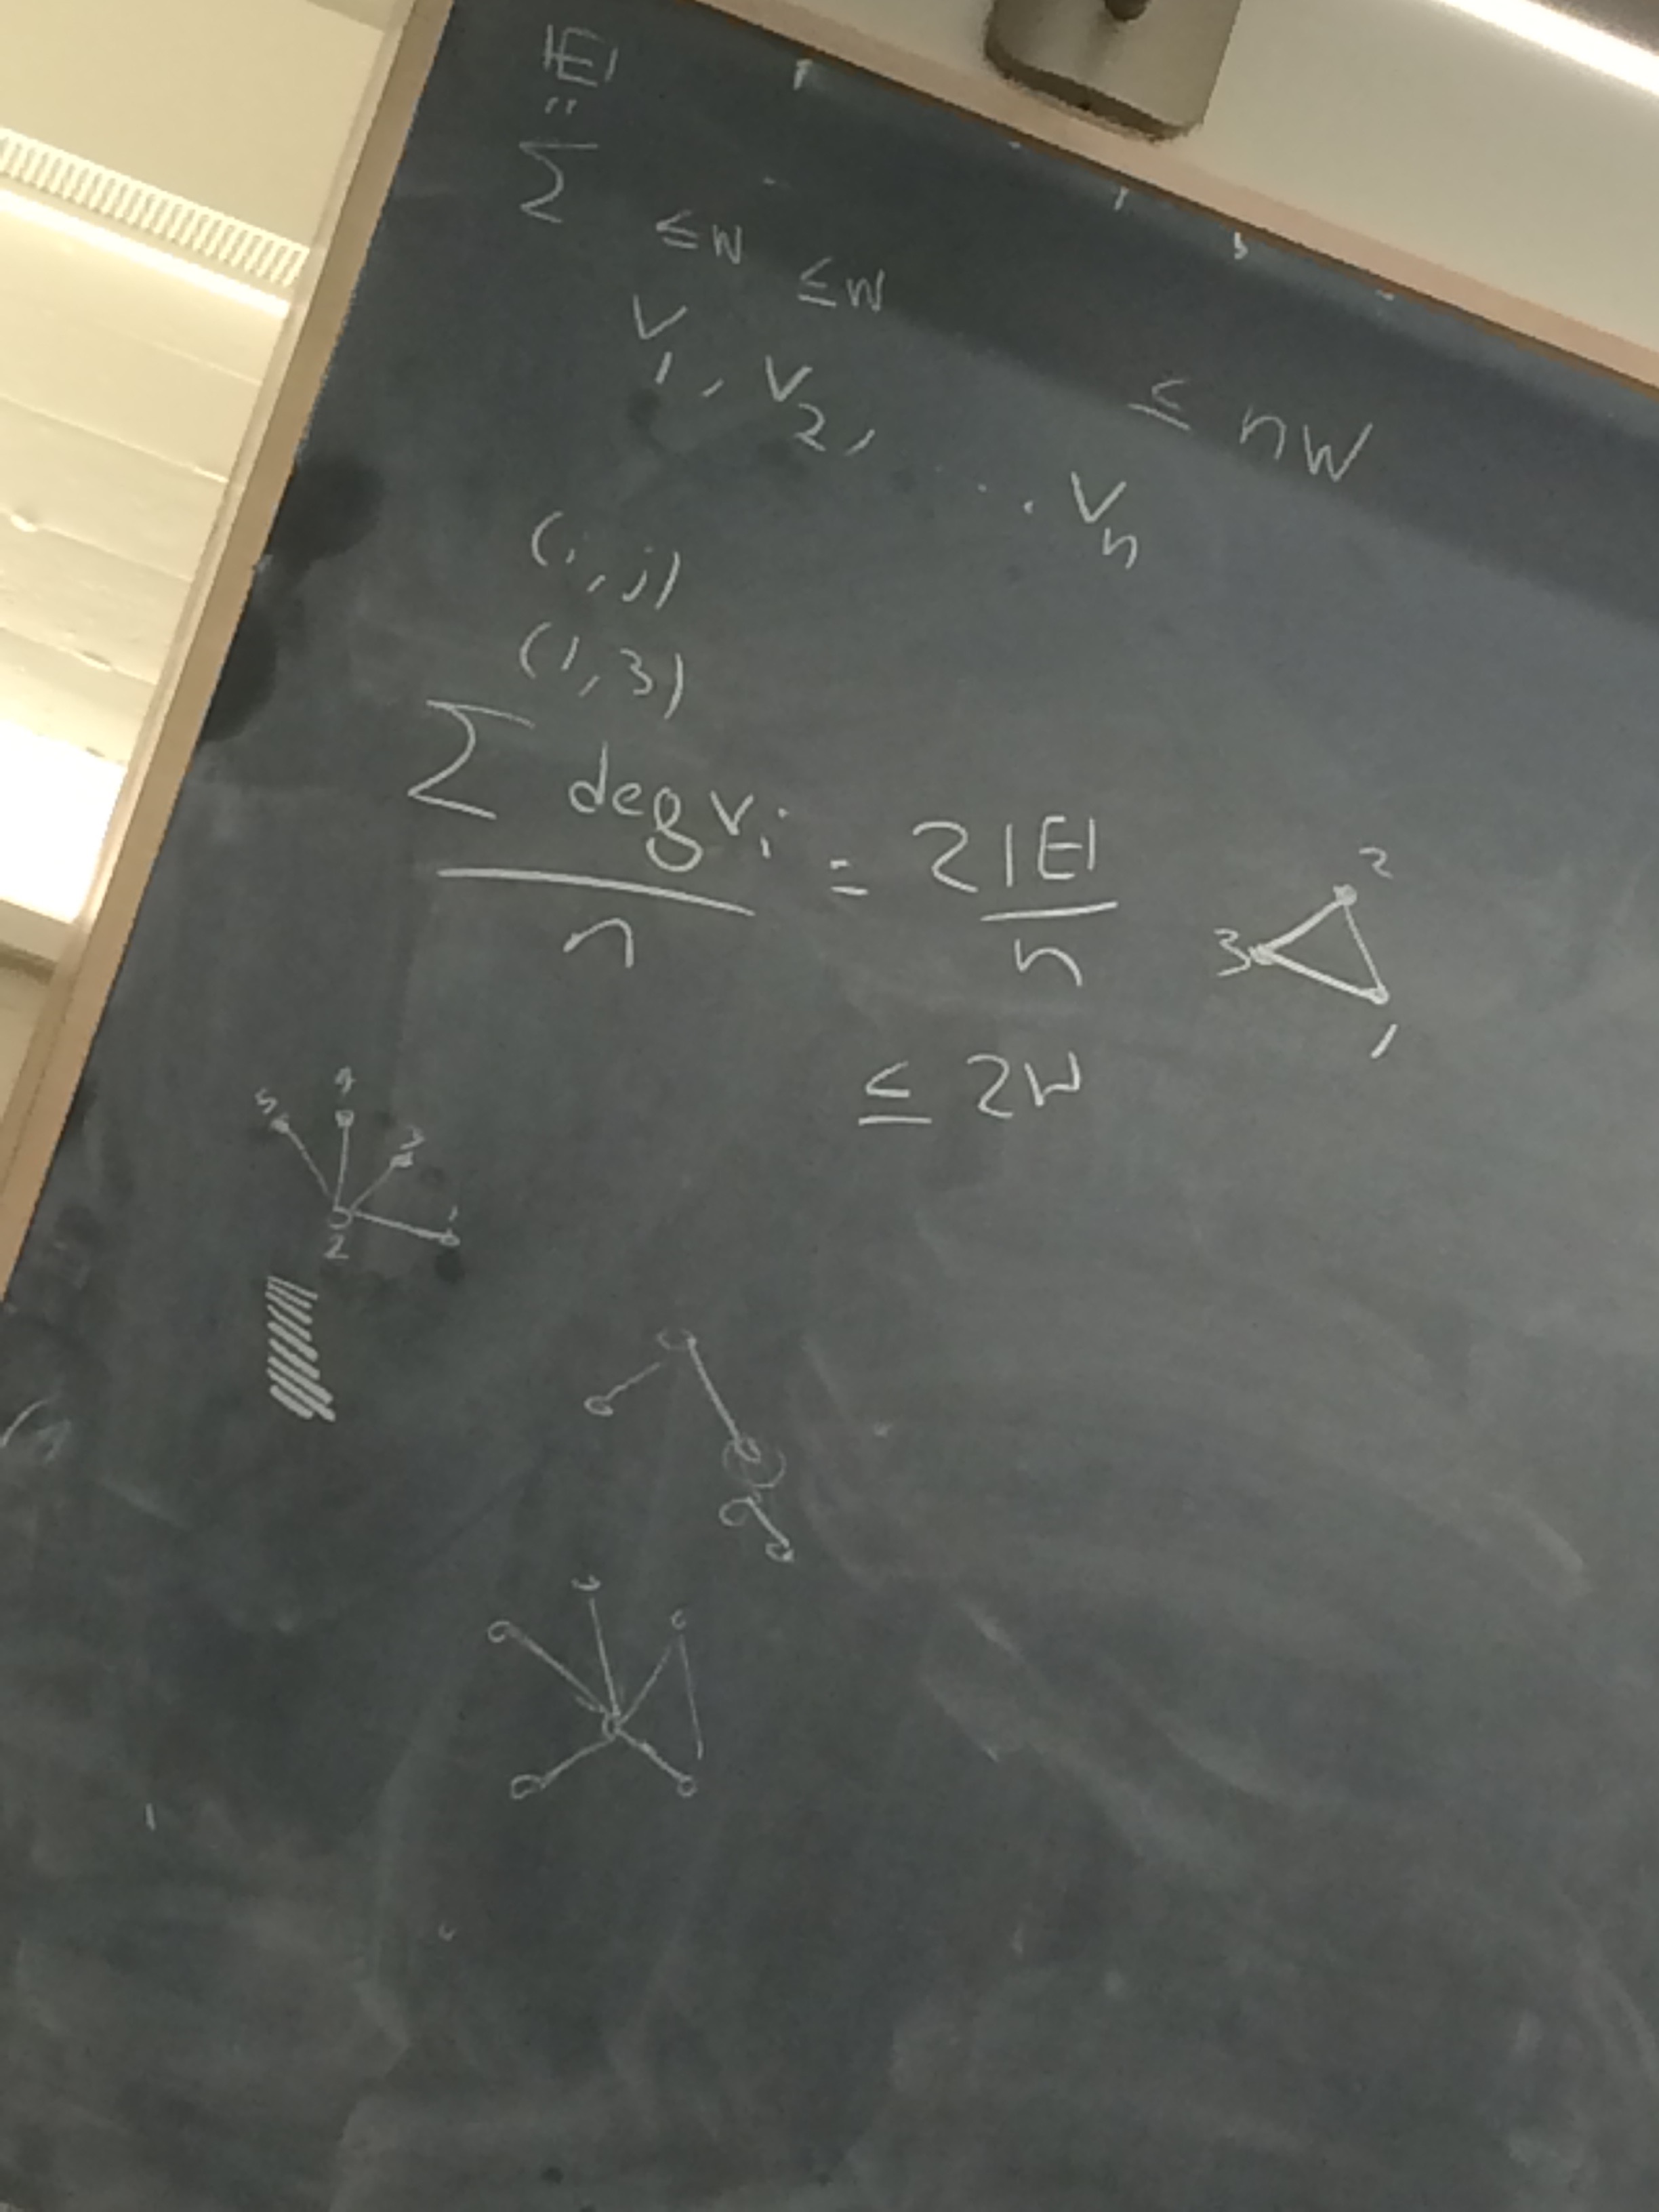 |E|
=
∑ ≤w ≤w
v₁, v₂, ... vₙ ≤ nw
(i, j)
(1, 3)
∑ deg vᵢ / n = 2|E| / n
≤ 2w
2
3
1
5 4 3
1
2